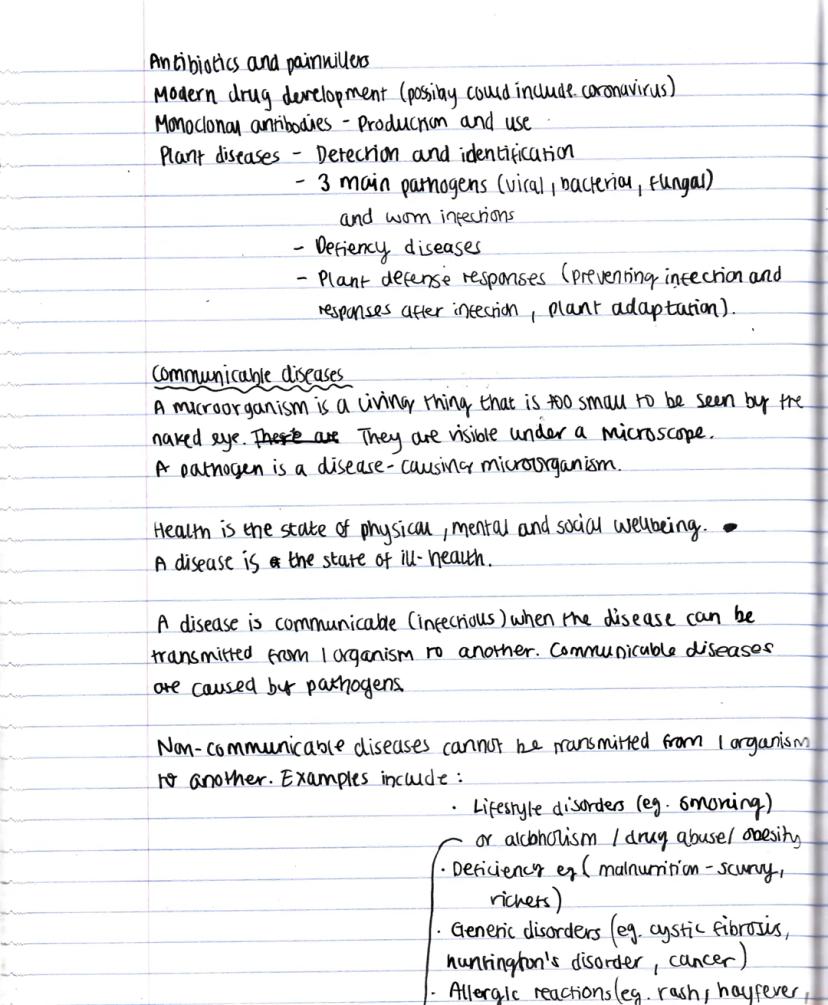 Antibiotics and painkillers
Modern drug development (possibly could include coronavirus)
Monoclonal antibodies - Production and use
Plant diseases - Detection and identification
- 3 main pathogens (viral, bacterial, fungal)
and worm infections
- Defiency diseases
- Plant defense responses (preventing infection and
responses after infection, plant adaptation).
Communicable diseases
A microorganism is a living thing that is too small to be seen by the
naked eye. There are They are visible under a microscope.
A pathogen is a disease-causing microorganism.
Health is the state of physical, mental and social wellbeing.
A disease is a the state of ill-health.
A disease is communicable (infectious) when the disease can be
transmitted from 1 organism to another. Communicable diseases
are caused by pathogens.
Non-communicable diseases cannot be transmitted from 1 organism
to another. Examples include:
· Lifestyle disorders (eg. smoking)
or alcoholism / drug abuse/ obesity
· Deficiency eg (malnutrition - scurvy,
rickets)
· Genetic disorders (eg. cystic fibrosis,
huntington's disorder, cancer)
· Allergic reactions (eg. rash, hayfever,